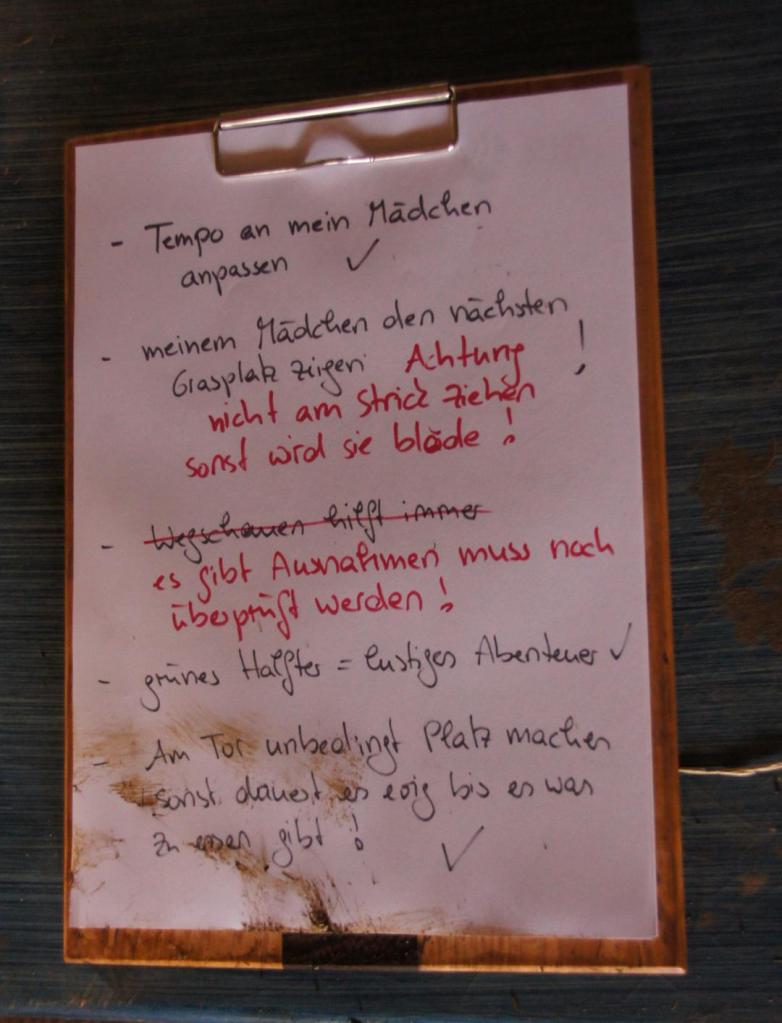 - Tempo an mein Mädchen
anpassen ✓
- meinem Mädchen den nächsten
Grasplatz zeigen Achtung !
nicht am Strick ziehen
sonst wird sie blöde !
- Wegschauen hilft immer
es gibt Ausnahmen muss noch
überprüft werden !
- grünes Halfter = lustiges Abenteuer ✓
- Am Tor unbedingt Platz machen
sonst dauert es ewig bis es was
zu essen gibt ! ✓